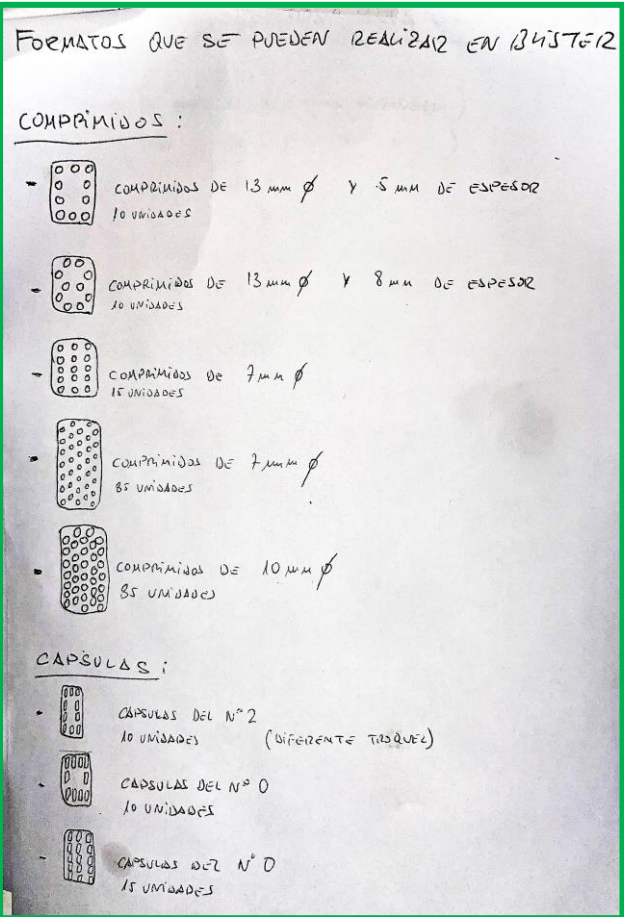 FORMATOS QUE SE PUEDEN REALIZAR EN BLISTER
COMPRIMIDOS :
- COMPRIMIDOS DE 13 mm ϕ Y 5 mm DE ESPESOR
10 UNIDADES
- COMPRIMIDOS DE 13 mm ϕ Y 8 mm DE ESPESOR
10 UNIDADES
- COMPRIMIDOS DE 7 mm ϕ
15 UNIDADES
- COMPRIMIDOS DE 7 mm ϕ
35 UNIDADES
- COMPRIMIDOS DE 10 mm ϕ
35 UNIDADES
CAPSULAS :
- CAPSULAS DEL Nº 2
10 UNIDADES (DIFERENTE TROQUEL)
- CAPSULAS DEL Nº 0
10 UNIDADES
- CAPSULAS DEL Nº 0
15 UNIDADES